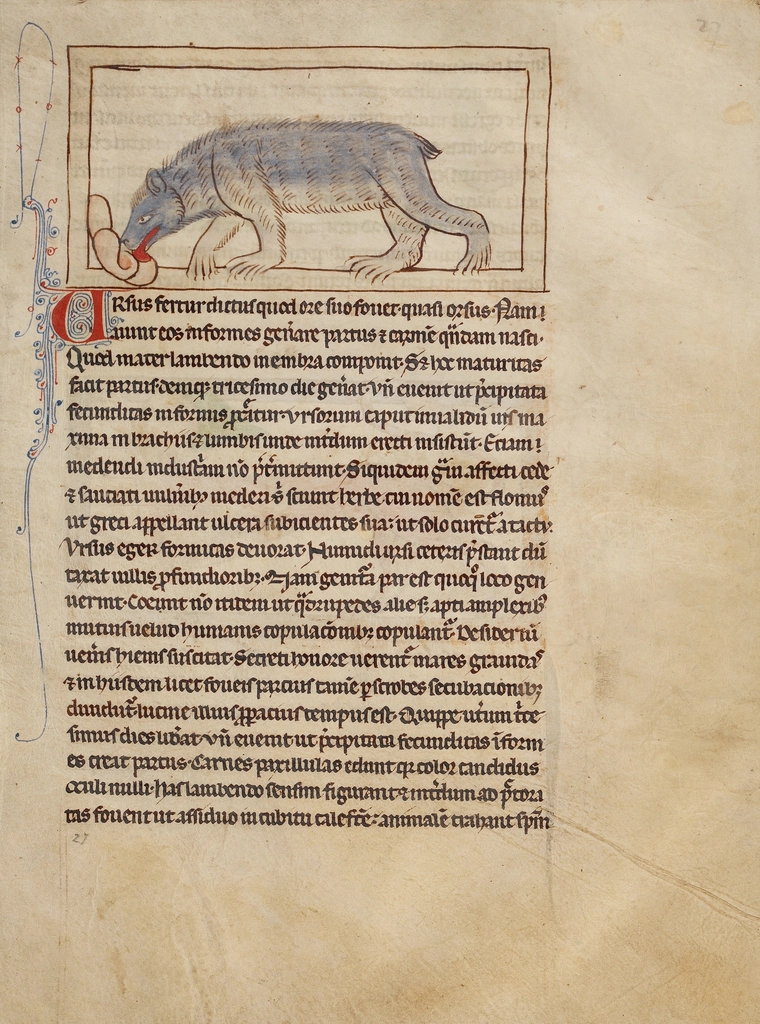 27
URsus fertur dictus quod ore suo fouet quasi orsus. Nam
aiunt eos informes gen̄are partus & carnē qn̄dam nasci.
Quod mater lambendo in embra componit. S& hec maturitas
facit partus. deniq; tricesimo die gen̄at. vn̄ euenit ut p̄cipitata
fecunditas informis ꝓcreatur. vrsorum caput inualidū uis ma
xima in brachiis & lumbis unde int̄dum erecti insistūt. Etiam
medendi industriam nō p̄t̄mittunt. Siquidem g̃ui affecti cede
& sauciati uulnibꝰ mederi s̄ sciunt herbe cui nomē est flomus
ut greci appellant ulcera subicientes sua: ut solo curent̄ a tactu.
Vrsus eger formicas deuorat. Numidi ursi ceteris p̄stant dū
taxat uillis ꝓfundioribꝫ. Nam genit̄a par est quoq̊ loco gen
uerint. Coeunt nō itidem ut q̈drupedes alie s; apti amplexibꝰ
mutuis uelud humanis copulacōnibꝫ copulant̄. Desideriū
ueneris hiems suscitat. Secreti honore uerent̄ mares grauidas
& in hiisdem licet foueis parcius tamē p scrobes secubacionibꝫ
diuidūt̄. lucine illius ꝓpacius tempus est. Quippe ut̄um t̄ce
simus dies lib̄at. vn̄ euenit ut p̄cipitata fecunditas īform
es creat partus. Carnes paxillulas edunt qr̄ color candidus
oculi nulli. has lambendo sensim figurant & int̄dum ad p̄tora
tas fouent ut assiduo incubitu calefcē: animalē trahant sp̄m
27